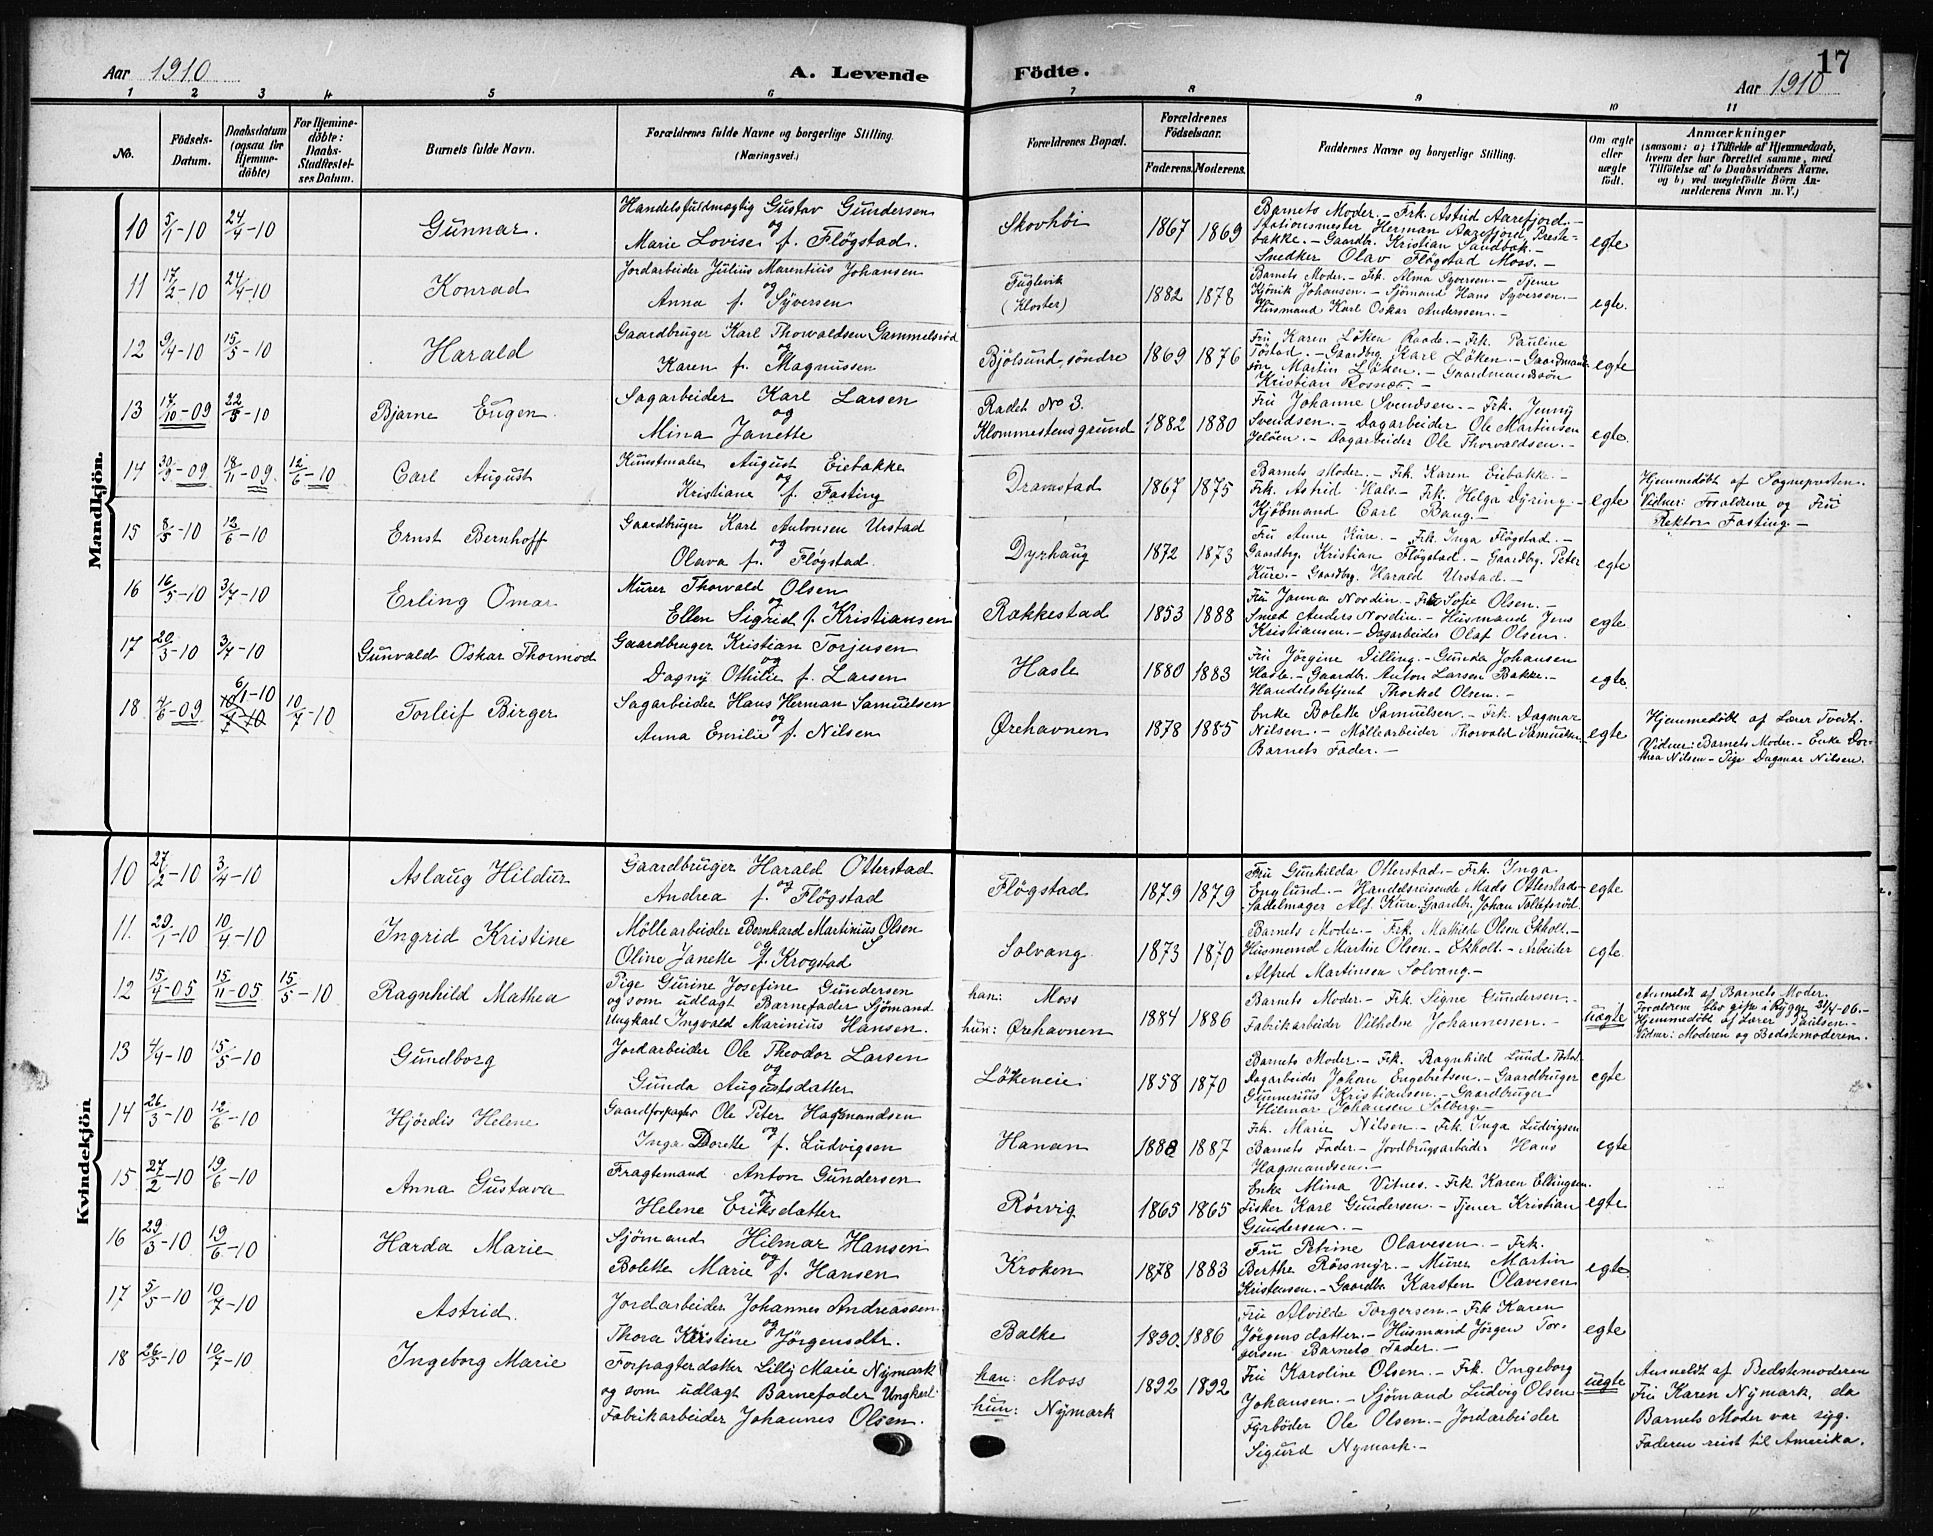 17
Aar 1910
A. Levende Födte.
Aar 1910
1 2 3 4 5 6 7 8 9 10 11
No.
Födsels-Datum.
Daabsdatum (ogsaa for Hjemmedöbte)
For Hjemmedöbte: Daabs-Stadfestelses Datum.
Barnets fulde Navn.
Forældrenes fulde Navne og borgerlige Stilling. (Næringsvei.)
Forældrenes Bopæl.
Forældrenes Födselsaar.
Faderens. Moderens.
Faddernes Navne og borgerlige Stilling.
Om ægte eller uægte födt.
Anmærkninger
(saasom: a) i Tilfælde af Hjemmedaab,
hvem der har forrettet samme, med
Tilföielse af to Daabsvidners Navne.
og b) ved uægtefödte Börn Anmelderens Navn m. V.)
Mandkjön.
10 5/1-10 24/4-10 Gunnar.
Handelsfuldmægtig Gustav Gundersen
og
Marie Lovise f. Fløgstad.
Skovhöi 1867 1869
Barnets Moder. - Frk. Astrid Aarefjord. -
Stationsmester Herman Aarefjord, Preste-
bakke. - Gaardbr. Kristian Sandbæk. -
Snedker Olav Fløgstad Moss. -
egte
11 17/2-10 24/4-10 Konrad
Jordarbeider Julius Marentius Johansen
og
Anna f. Syversen
Fuglevik
(Kloster) 1882 1878
Barnets Moder. - Frk. Alma Syversen. - Tjener
Johansen. - Sjömand Hans Syversen. -
Husmand Karl Oskar Anderssen. -
egte.
12 9/4-10 15/5-10 Harald
Gaardbruger Karl Thorvaldsen Gammelsrød
og
Karen f. Magnussen
Bjölsund, söndre 1869 1876
Fru Karen Löken Raade. - Frk. Pauline
Töstad. - Gaardbrg. Karl Löken. - Gaardmand-
sön Martin Löken. - Gaardmandssön
Kristian Rosnæs. -
egte
13 17/10-09 22/5-10 Bjarne Eugen.
Sagarbeider Karl Larsen
og
Mina Janette
Radet No 3.
Klommestensgrund 1882 1880
Fru Johanne Svendsen. - Frk. Jenny
Svendsen. - Dagarbeider Ole Martinsen
Jelöen. - Dagarbeider Ole Thorvaldsen. -
egte.
14 30/9-09 18/11-09 12/6-10 Carl August
Kunstmaler August Eiebakke
og
Kristiane f. Fasting
Dramstad 1867 1875
Barnets Moder. - Frk. Karen Eiebakke. -
Frk. Astrid Hals. - Frk. Helga Dyring. -
Kjöbmand Carl Bang. -
egte
Hjemmedöbt af Sognepresten.
Vidner: Forældrene og Fru
Rektor Fasting -
15 8/5-10 12/6-10 Ernst Bernhoff
Gaardbruger Karl Antonsen Urstad
og
Olava f. Fløgstad.
Dyrhaug 1872 1873
Fru Anne Kure. - Frk. Inga Flögstad. -
Gaardbg. Kristian Flögstad. - Gaardbg. Peter
Kure. - Gaardbg. Harald Urstad. -
egte
16 16/5-10 3/7-10 Erling Omar
Murer Thorvald Olsen
og
Ellen Sigrid f. Kristiansen
Rakkestad 1853 1888
Fru Janna Nordin. - Frk Sofie Olsen. -
Smed Anders Nordin. - Husmand Jens
Kristiansen. - Dagarbeider Olaf Olsen.
egte
17 20/3-10 3/7-10 Gunvald Oskar Thormod
Gaardbruger Kristian Torjusen
og
Dagny Othilie f. Larsen
Hasle 1880 1883
Fru Jörgine Dilling. - Gunda Johansen
Hasle. - Gaardbr. Anton Larsen Bakke. -
Handelsbetjent Thorkel Olsen. -
egte.
18 4/6-09 6/1-10 10/7-10 10/7-10 Torleif Birger
Sagarbeider Hans Herman Samuelsen
og
Anna Emilie f. Nilsen
Ørehavnen 1878 1885
Enke Bolette Samuelsen. - Frk. Dagmar
Nilsen. - Möllearbeider Thorvald Samuelsen
Barnets Fader. -
egte
Hjemmedöbt af Lærer Tvedt.
Vidner: Barnets Moder. - Enke Doro-
thea Nilsen - Pige Dagmar Nilsen.
Kvindekjön
10 27/12-10 3/4-10 Aslaug Hildur
Gaardbruger Harald Otterstad
og
Andrea f. Fløgstad
Fløgstad 1879 1879
Fru Gunhilda Otterstad. - Frk. Inga
Englund. - Handelsreisende Mads Otterstad -
Sadelmager Alf. Kure. Gaardbr. Johan Tollefsröd.
egte
11. 29/1-10 10/4-10 Ingrid Kristine
Möllearbeider Bernhard Martinius Olsen
og
Oline Janette f. Krogstad
Solvang. 1873 1870
Barnets Moder. - Frk. Mathilde Olsen Ekholt. -
Husmand Martin Olsen. - Ekholt. - Arbeider
Alfred Martinsen Solvang. -
egte.
12 15/4-05 15/11-05 15/5-10 Ragnhild Mathea
Pige Gurine Josefine Gundersen
og som udlagt Barnefader Sjömand
Ungkarl Ingvald Marinius Hansen.
han: Moss
hun: Ørehavnen 1884 1886
Barnets Moder. - Frk. Signe Gundersen. -
Fabrikarbeider Vilhelm Johannessen. -
uægte
Anmeldt af Barnets Moder.
Forældrene blev gifte i Rygge 21/4-06. -
Hjemmedöbt af Lærer Paulsen. -
Vidner: Moderen og Bedstemoderen.
13 4/4-10 15/5-10 Gundborg
Jordarbeider Ole Theodor Larsen
og
Gunda Augustsdatter
Løkeneie 1858 1870
Barnets Moder. - Frk. Ragnhild Lund
Dagarbeider Johan Engebretsen. - Gaardbruger
Gunnerius Kristiansen. - Gaardbruger
Hilmar Johansen Solberg. -
egte
14 26/3-10 12/6-10 Hjördis Helene
Gaardforpagter Ole Peter Hagsmandsen
og
Inga Dorette f. Ludvigsen
Hanan 1888 1887
Frk. Marie Nilsen. - Frk. Inga Ludvigsen
Barnets Fader. - Jordbrugsarbeider Hans
Hagmandsen. -
egte
15 27/2-10 19/6-10 Anna Gustava
Fragtemand Anton Gundersen
og
Helene Eriksdatter
Rörvig 1865 1865
Enke Mina Vitnes. - Frk. Karen Ellingsen.
Fisker Karl Gundersen. - Tjener Kristian
Gundersen. -
egte
16 29/3-10 19/6-10 Harda Marie
Sjömand Hilmar Hansen
og
Bolette Marie f. Hansen
Kroken 1878 1883
Fru Petrine Olavesen. - Frk.
Berthe Rörsmyr. - Murer Martin
Kristensen. - Gaardbr. Karsten Olavesen
egte.
17 5/5-10 10/7-10 Astrid.
Jordarbeider Johannes Andreassen
og
Thora Kristine Jörgensdtr.
Balke 1890. 1886
Fru Alvilde Torgersen. - Frk Karen
Jörgensdatter. - Husmand Jörgen Tor-
gersen Barnets Fader. -
egte
18 26/5-10 10/7-10 Ingeborg Marie
Forpagterdatter Lilly Marie Nymark
og som udlagt Barnefader Ungkarl
Fabrikarbeider Johannes Olsen.
han: Moss
hun: Nymark 1892 1892
Fru Karoline Olsen. - Frk. Ingeborg
Johansen. - Sjömand Ludvig Olsen
Fyrböder Ole Olsen. - Jordarbeider
Sigurd Nymark. -
uægte
Anmeldt af Bedstemoderen
Fru Karen Nymark, da
Barnets Moder var syg.
Faderen reist til Amerika.